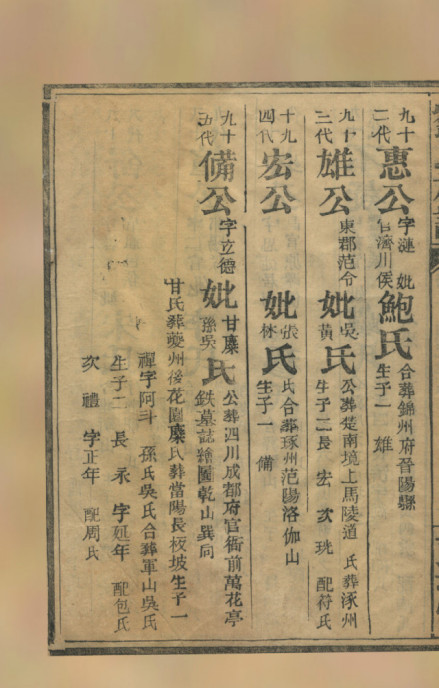 九十二代惠公字漣官濟川侯妣鮑氏合葬錦州府晉陽縣生子一雄
九十三代雄公東郡范令妣吳黃氏公葬楚南境上馬陵道 氏葬涿州生子二長宏次珖配符氏
十九四代宏公妣張林氏氏合葬琢州范陽洛伽山生子一備
九十五代備公字立德妣甘糜孫吳氏公葬四川成都府官衙前萬花亭鉄墓誌繪圖乾山巽向
甘氏葬夔州後花園糜氏葬當陽長板坡生子一
禪字阿斗 孫氏吳氏合葬軍山吳氏
生子二長永字延年配包氏
次禮字正年配周氏